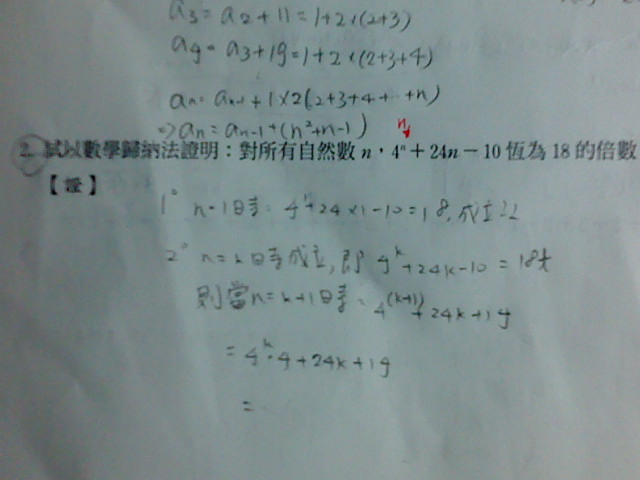 a₃ = a₂ + 11 = 1 + 2 × (2+3)
a₄ = a₃ + 19 = 1 + 2 × (2+3+4)
aₙ = aₙ₋₁ + 1 × 2(2+3+4+…+n)
⇒ aₙ = aₙ₋₁ + (n²+n-1)
n
2. 試以數學歸納法證明：對所有自然數 n，4ⁿ + 24n − 10 恆為 18 的倍數
【證】
1° n=1時: 4ⁿ+24×1-10=18, 成立
2° n=k時成立, 即 4ᵏ+24k-10=18t
則當n=k+1時: 4⁽ᵏ⁺¹⁾+24k+14
= 4ᵏ·4+24k+14
=